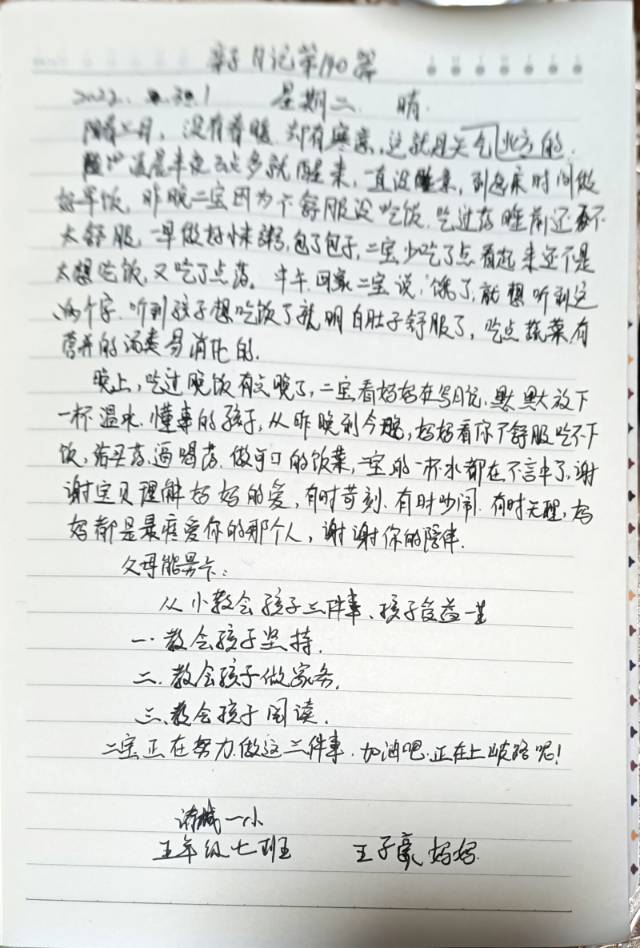 亲子日记第190篇
2022. 3.1 星期二 晴.
阳春三月，没有春暖却有寒凉，这就是天气北方的.
凌晨半夜三点多就醒来，一直没睡意，到起床时间做
好早饭，昨晚二宝因为不舒服没吃饭.吃过药睡前还不
太舒服，一早做好小米粥，包了包子，二宝少吃了点看起来还不是
太想吃饭，又吃了点药。中午回家二宝说:饿了,就想听到这
两个字.听到孩子想吃饭了就明白肚子舒服了，吃点蔬菜有
营养的汤类易消化的.
晚上,吃过晚饭有点晚了,二宝看妈妈在写日记.默默放下
一杯温水.懂事的孩子,从昨晚到今晚,妈妈看你不舒服吃不下
饭,给买药,逼喝药.做可口的饭菜,二宝的一杯水都在不言中了,谢
谢宝贝理解妈妈的爱,有时苛刻.有时吵闹.有时无理,妈
妈都是最疼爱你的那个人,谢谢你的陪伴.
父母能量卡:
从小教会孩子三件事、孩子受益一生
一.教会孩子坚持.
二.教会孩子做家务.
三.教会孩子阅读.
二宝正在努力做这三件事.加油吧.正在上岐路呢!
诸城一小
五年级七班 王子豪妈妈.